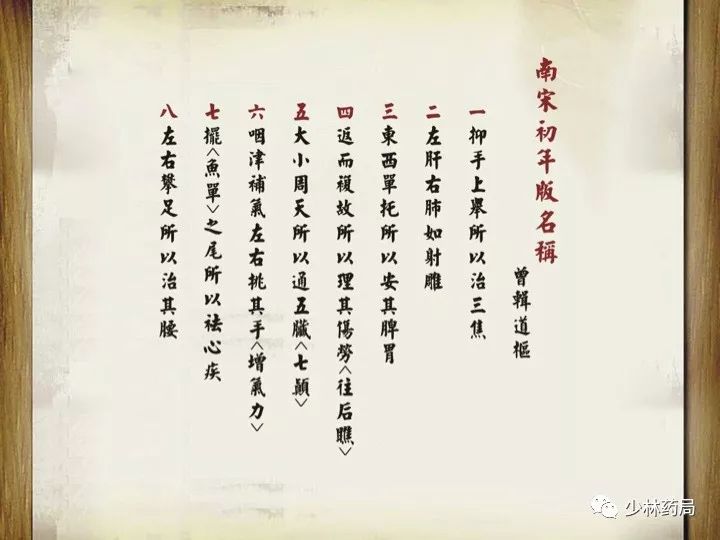 南宋初年版名稱
曾輯道樞
一抑手上舉所以治三焦
二左肝右肺如射雕
三東西單托所以安其脾胃
四返而複故所以理其傷勞<往后瞧>
五大小周天所以通五臟<七顛>
六咽津補氣左右挑其手<增氣力>
七擺<魚單>之尾所以祛心疾
八左右攀足所以治其腰
少林药局